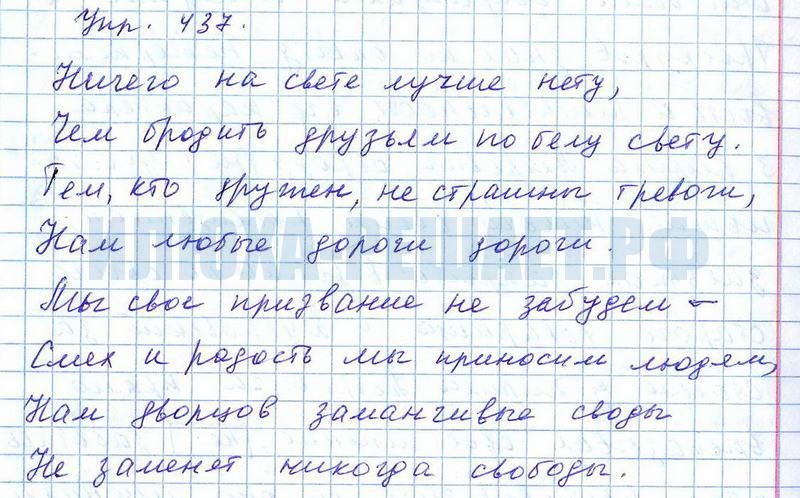 Упр. 437.
Ничего на свете лучше нету,
Чем бродить друзьям по белу свету.
Тем, кто дружен, не страшны тревоги,
Нам любые дороги дороги.
ИЛЮХА-РЕШАЕТ.РФ
Мы свое призвание не забудем –
Смех и радость мы приносим людям,
Нам дворцов заманчивые своды
Не заменят никогда свободы.